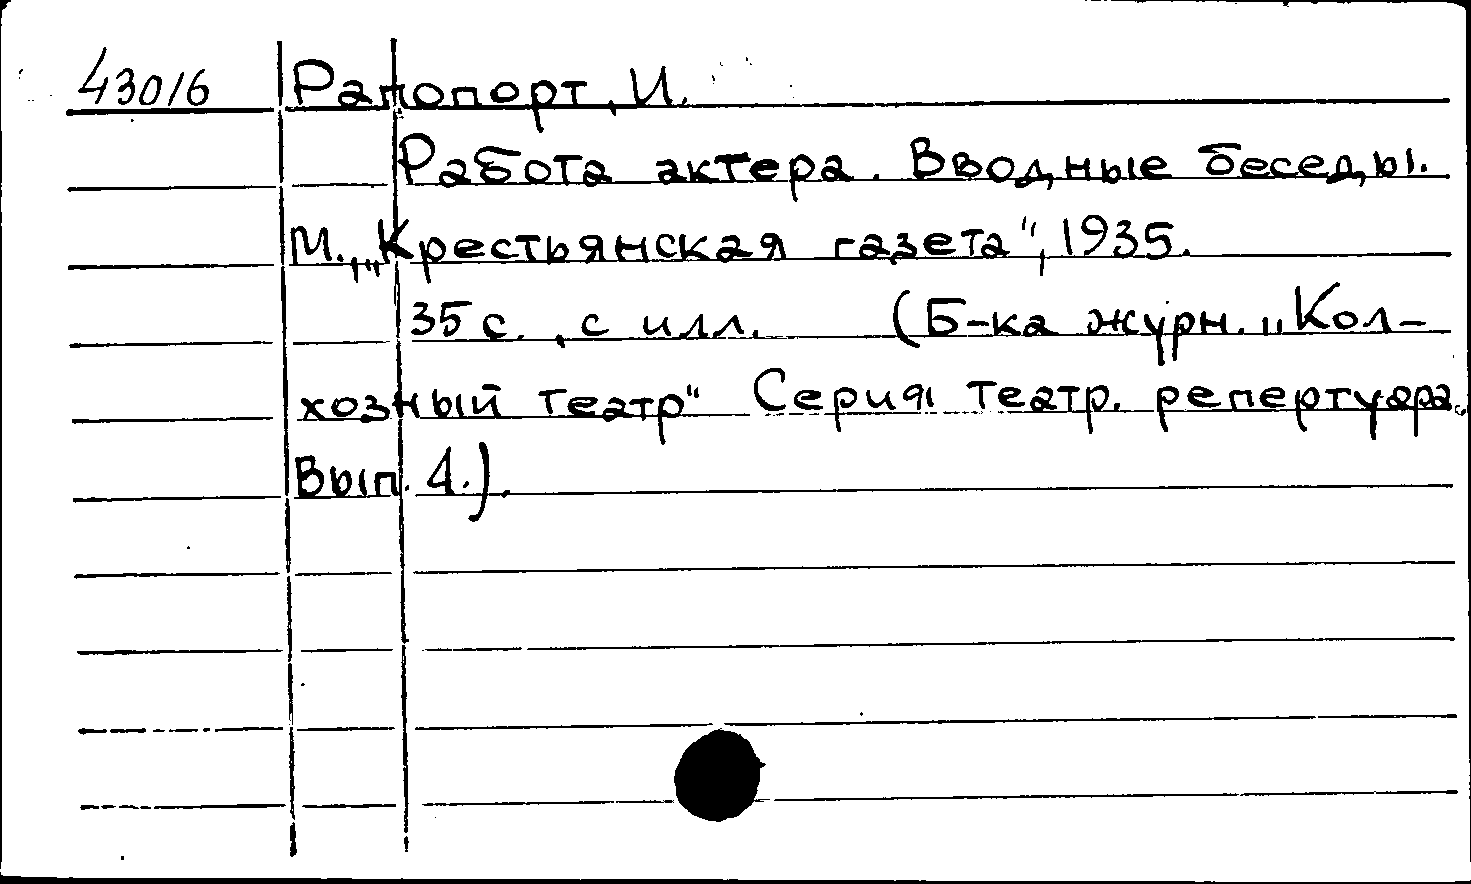 43016 Рапопорт, И.
Работа актера. Вводные беседы.
М., „Крестьянская газета", 1935.
35 с., с илл. (Б-ка журн. „Кол-
хозный театр" Серия театр. репертуара.
Вып. 4.).